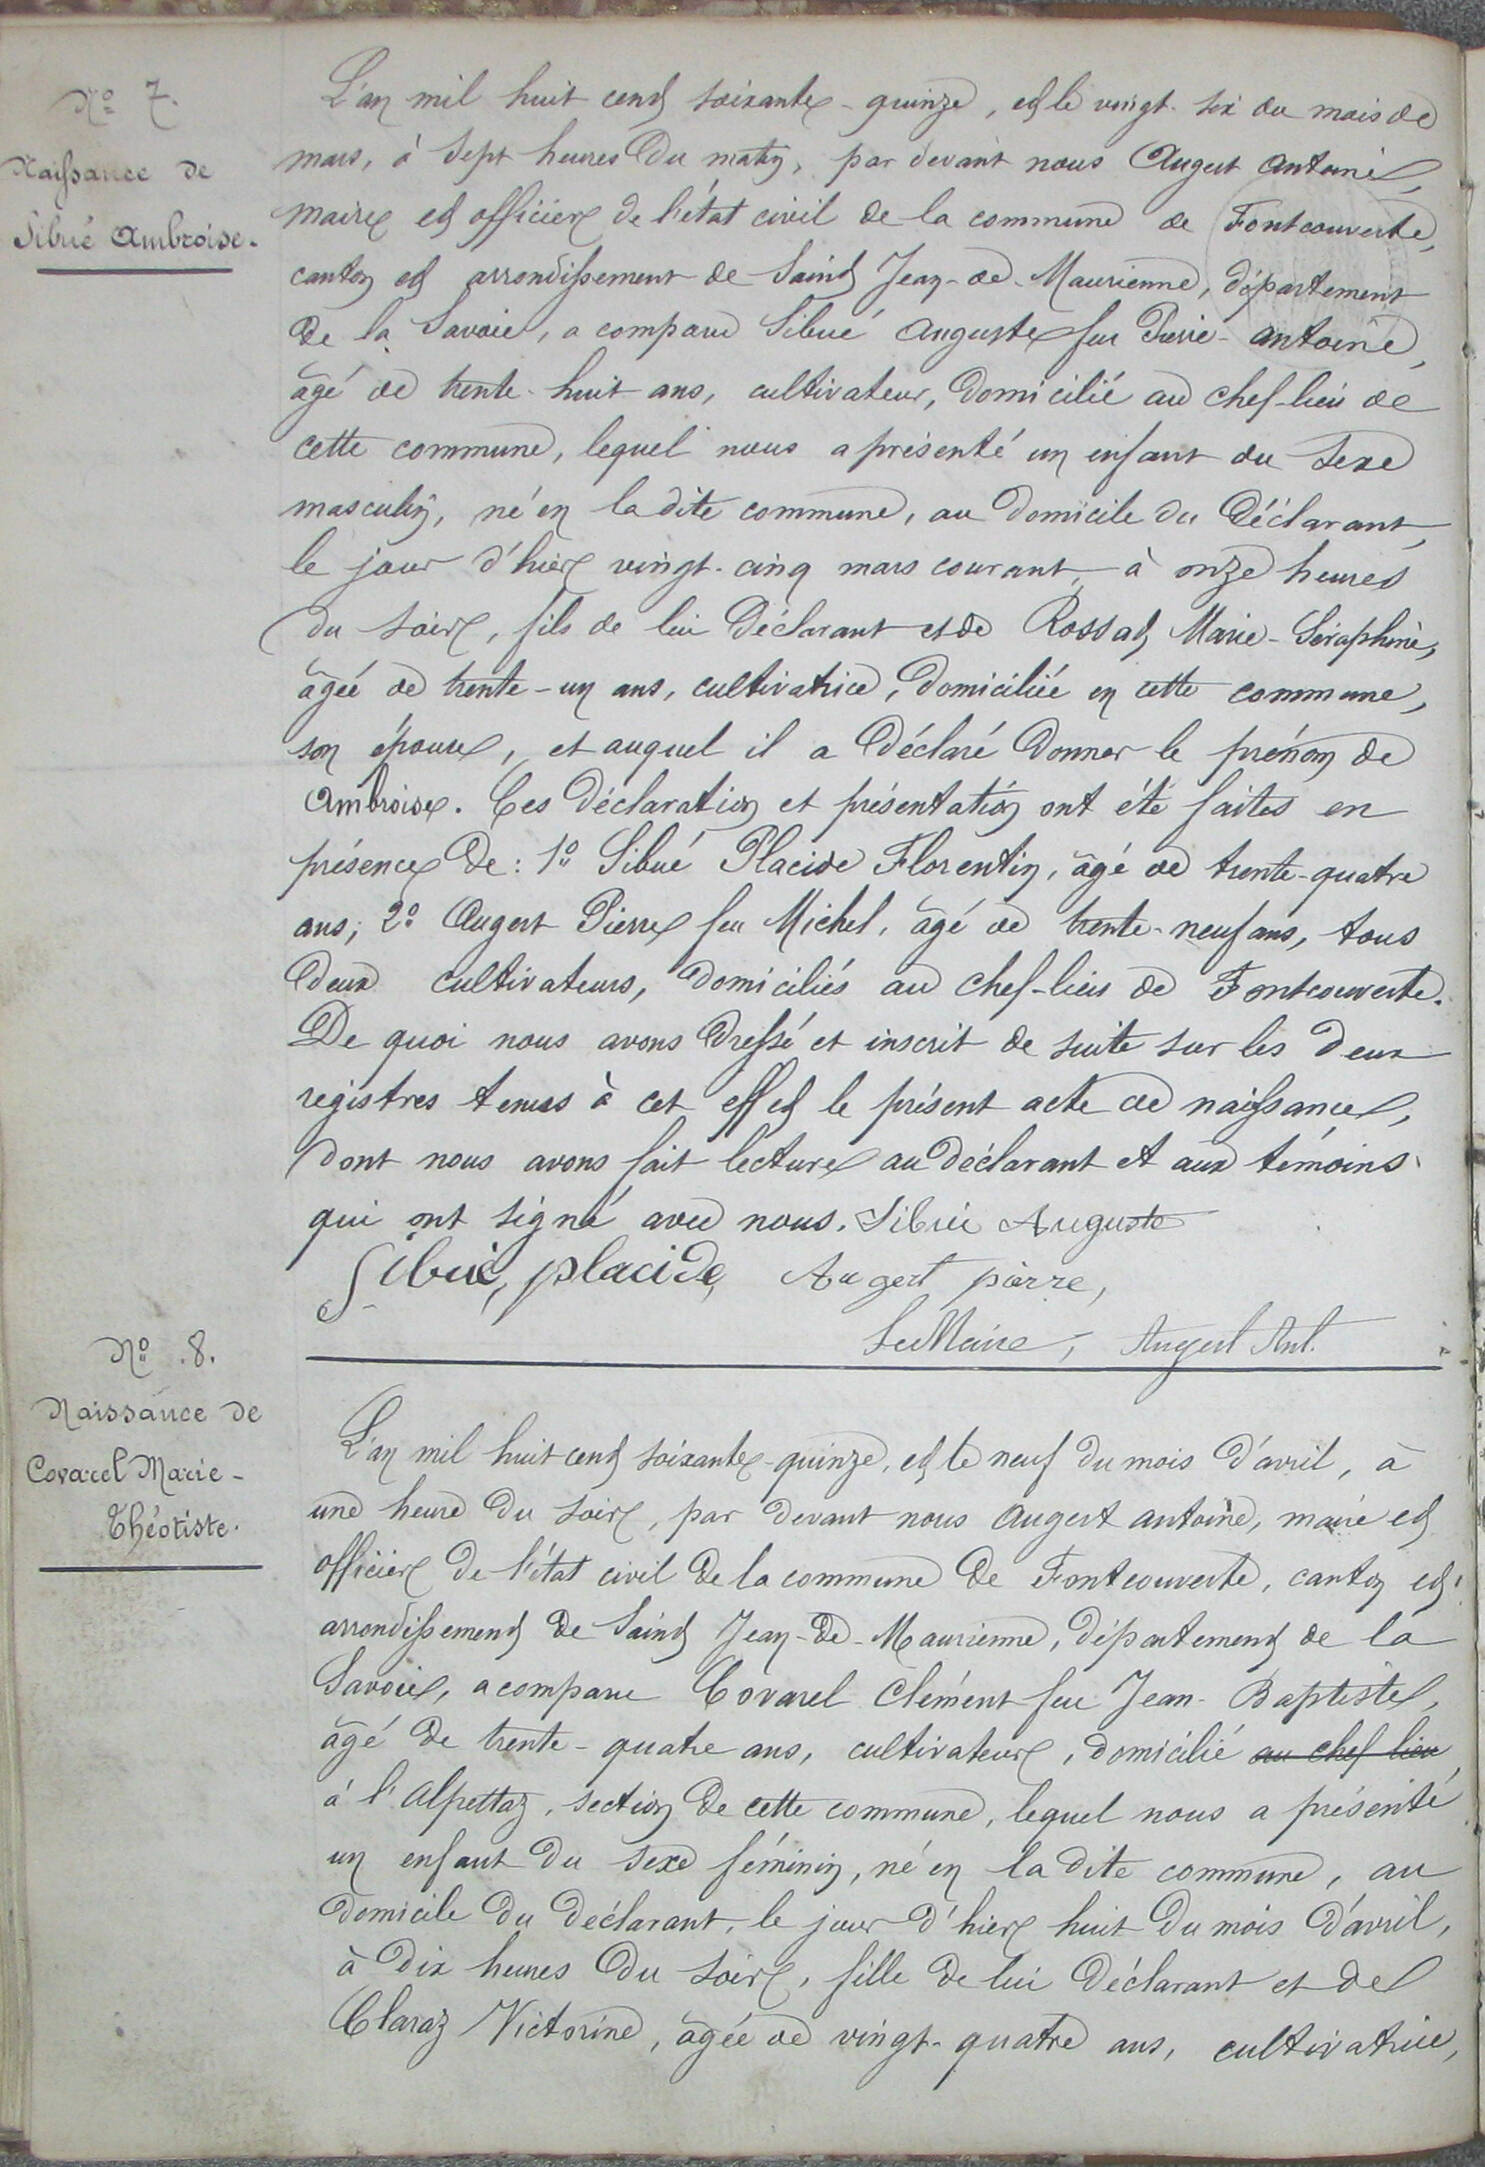 N° 7.
Naissance de
Sibué Ambroise.
L'an mil huit cent soixante-quinze, et le vingt-six du mois de
mars, à sept heures du matin, par devant nous Augert Antoine,
maire et officier de l'état civil de la commune de Fontcouverte,
canton et arrondissement de Saint Jean-de-Maurienne, département
de la Savoie, a comparu Sibué Auguste feu Pierre-Antoine,
âgé de trente-huit ans, cultivateur, domicilié au chef-lieu de
cette commune, lequel nous a présenté un enfant du sexe
masculin, né en la dite commune, au domicile du déclarant,
le jour d'hier vingt-cinq mars courant, à onze heures
du soir, fils de lui déclarant et de Rossat Marie-Séraphine,
âgée de trente-un ans, cultivatrice, domiciliée en cette commune,
son épouse, et auquel il a déclaré donner le prénom de
Ambroise. Ces déclaration et présentation ont été faites en
présence de : 1° Sibué Placide Florentin, âgé de trente-quatre
ans; 2° Augert Pierre feu Michel, âgé de trente-neuf ans, tous
deux cultivateurs, domiciliés au chef-lieu de Fontcouverte.
De quoi nous avons dressé et inscrit de suite sur les deux
registres tenus à cet effet le présent acte de naissance,
dont nous avons fait lecture au déclarant et aux témoins
qui ont signé avec nous. Sibué Auguste
Sibué, placide, Augert pierre,
Le Maire, Augert Ant.
N° 8.
Naissance de
Covarel Marie-
Théotiste.
L'an mil huit cent soixante-quinze, et le neuf du mois d'avril, à
une heure du soir, par devant nous Augert Antoine, maire et
officier de l'état civil de la commune de Fontcouverte, canton et
arrondissement de Saint Jean-de-Maurienne, département de la
Savoie, a comparu Covarel Clément feu Jean-Baptiste,
âgé de trente-quatre ans, cultivateur, domicilié au chef lieu,
à l'Alpettaz, section de cette commune, lequel nous a présenté
un enfant du sexe féminin, né en la dite commune, au
domicile du déclarant, le jour d'hier huit du mois d'avril,
à dix heures du soir, fille de lui déclarant et de
Claraz Victorine, âgée de vingt-quatre ans, cultivatrice,